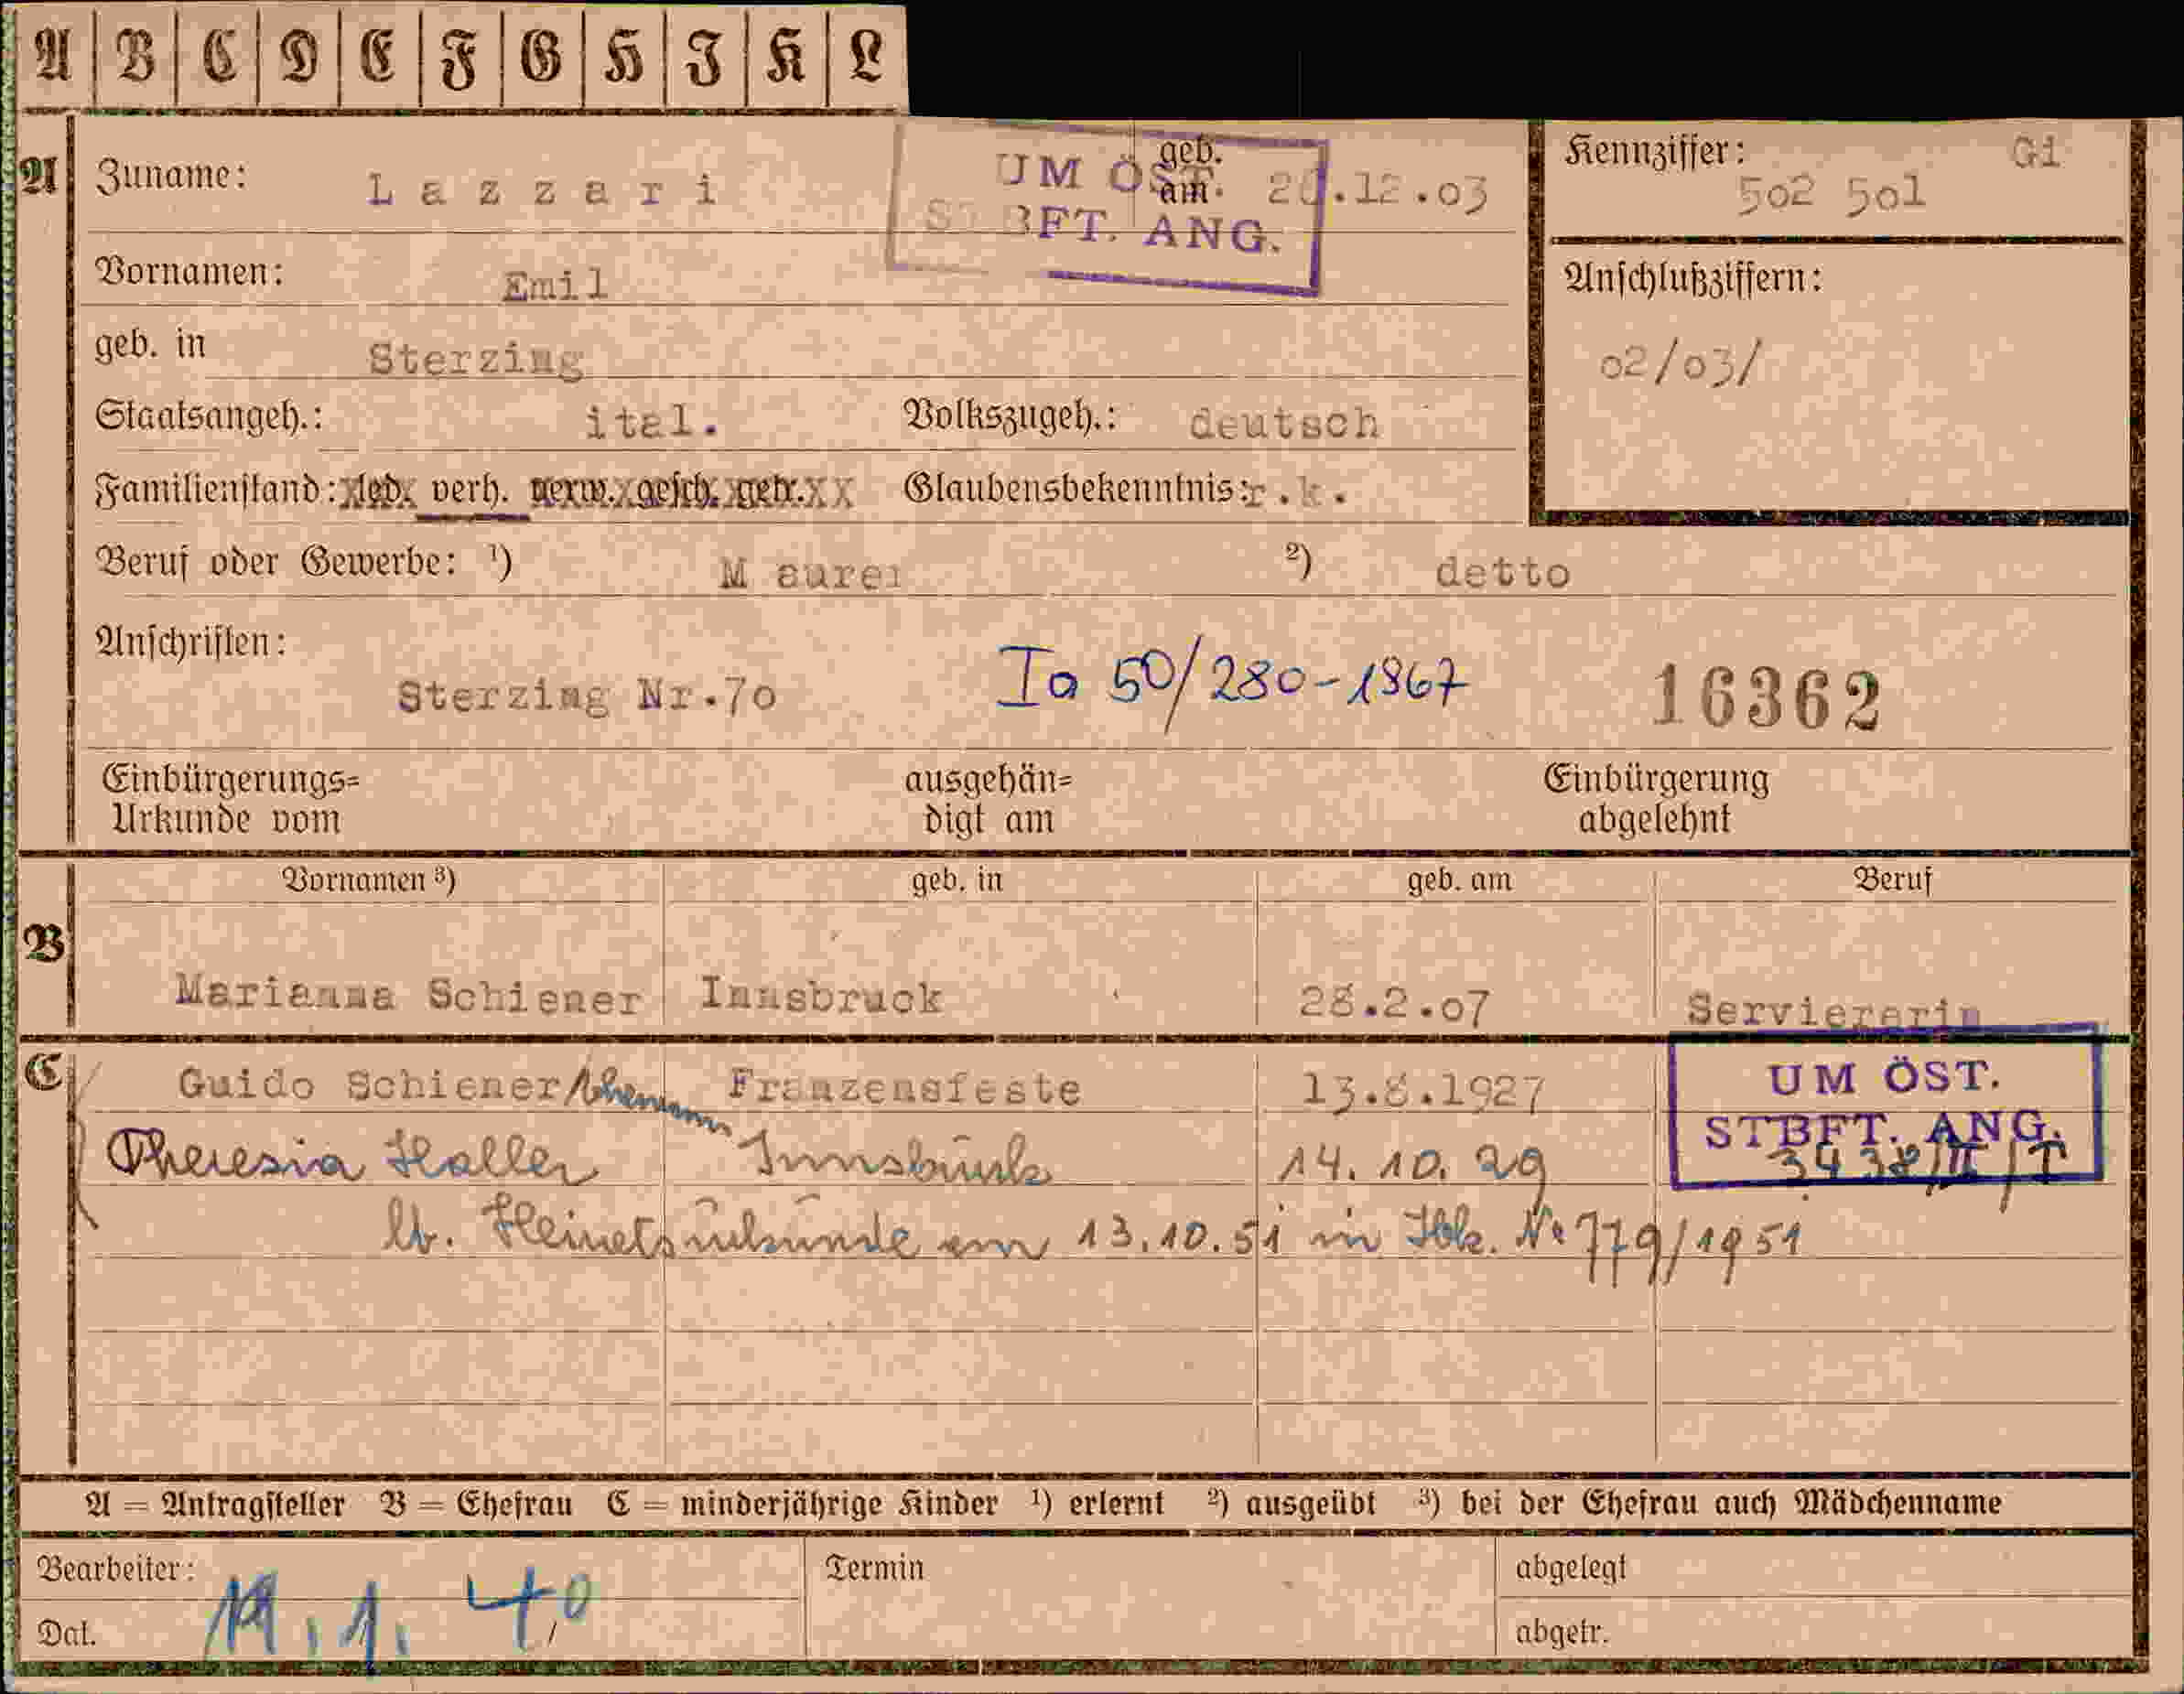 A B C D E F G H I K L
A Zuname: Lazzari geb. am .12.03 Kennziffer: Gi
UM ÖST. 502 501
STBFT. ANG.
Vornamen: Emil Anschlußziffern:
geb. in Sterzing 02/03/
Staatsangeh.: ital. Volkszugeh.: deutsch
Familienstand: led. verh. verw. gesch. getr. Glaubensbekenntnis: r.k.
Beruf oder Gewerbe: ¹) Maurer ²) detto
Anschriften:
Sterzing Nr.70 Ia 50/280-1867 16362
Einbürgerungs= ausgehän= Einbürgerung
Urkunde vom digt am abgelehnt
Vornamen ³) geb. in geb. am Beruf
B
Marianna Schiener Innsbruck 28.2.07 Serviererin
C Guido Schiener/Ehemann Franzensfeste 13.8.1927 UM ÖST.
STBFT. ANG.
Theresia Haller Innsbruck 14.10.29 3438/II/T
lt. Heiratsurkunde am 13.10.51 in Ibk. Nr 779/1951
A = Antragsteller B = Ehefrau C = minderjährige Kinder ¹) erlernt ²) ausgeübt ³) bei der Ehefrau auch Mädchenname
Bearbeiter: Termin abgelegt
Dat. 19.1.40 abgetr.